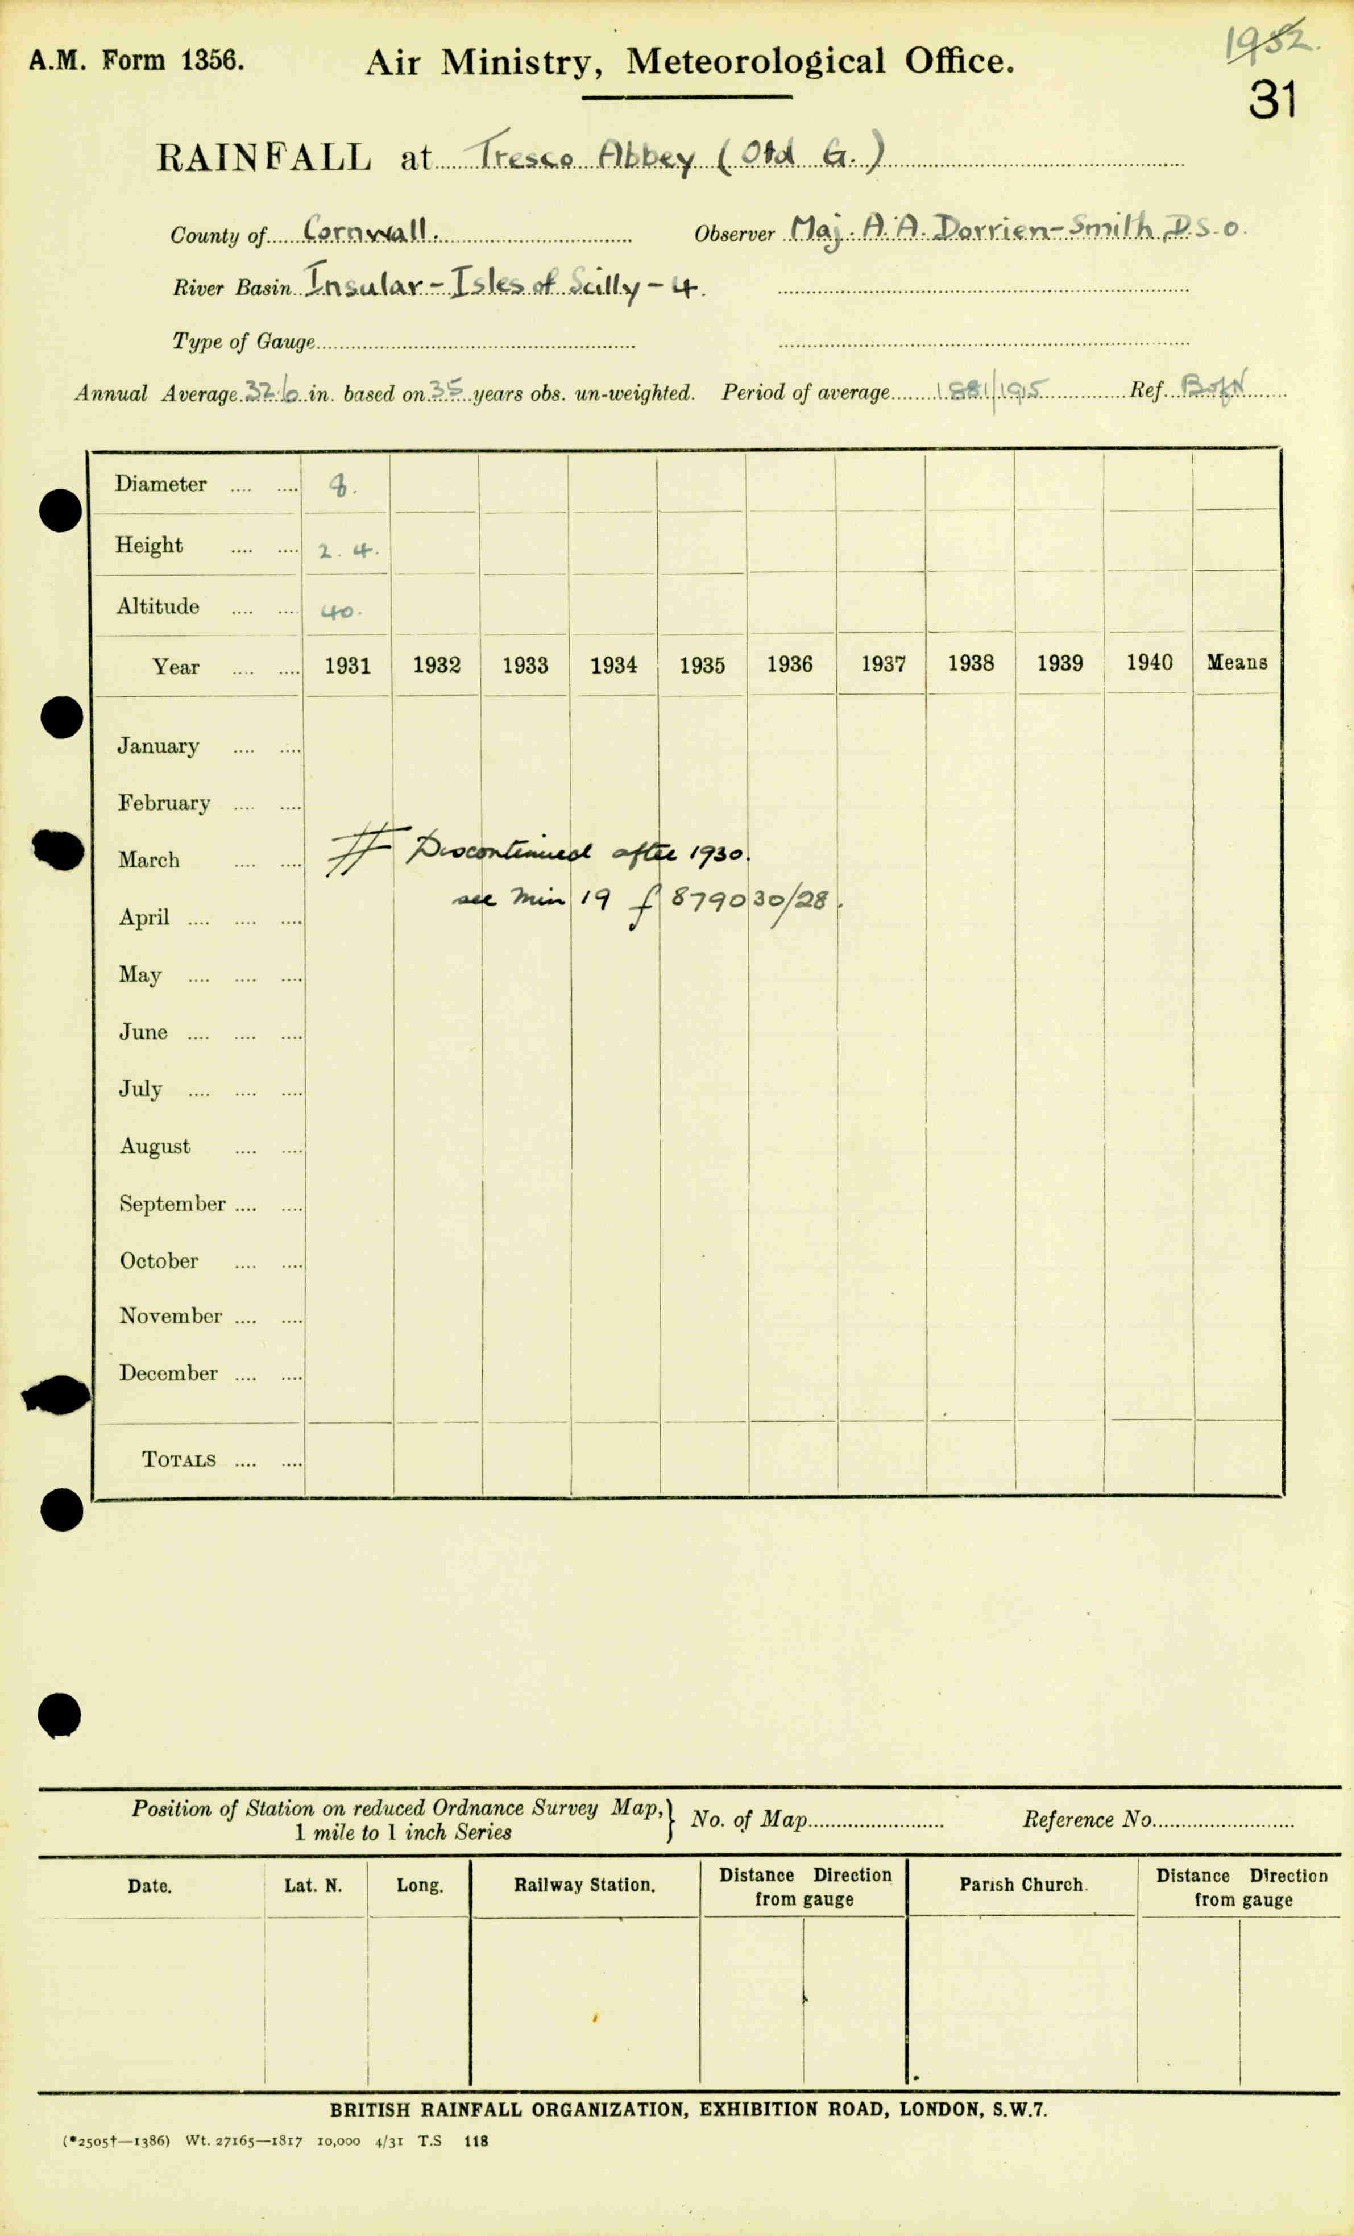 1932.
A.M. Form 1356. Air Ministry, Meteorological Office.
31
RAINFALL at Tresco Abbey (Old G.)
County of Cornwall. Observer Maj. A.A. Dorrien-Smith, D.S.O.
River Basin Insular - Isles of Scilly - 4.
Type of Gauge
Annual Average 32.6 in. based on 35 years obs. un-weighted. Period of average 1881/1915 Ref. B of N
Diameter .... .... 8.
Height .... .... 2. 4.
Altitude .... .... 40.
Year .... .... 1931 1932 1933 1934 1935 1936 1937 1938 1939 1940 Means
January .... ....
February .... ....
March .... .... # Discontinued after 1930.
see Min 19 of 879030/28.
April .... .... ....
May .... .... ....
June .... .... ....
July .... .... ....
August .... ....
September .... ....
October .... ....
November .... ....
December .... ....
TOTALS .... ....
Position of Station on reduced Ordnance Survey Map, } No. of Map Reference No.
1 mile to 1 inch Series
Date. Lat. N. Long. Railway Station. Distance Direction from gauge Parish Church. Distance Direction from gauge
BRITISH RAINFALL ORGANIZATION, EXHIBITION ROAD, LONDON, S.W.7.
(*2505†—1386) Wt. 27165—1817 10,000 4/31 T.S 118